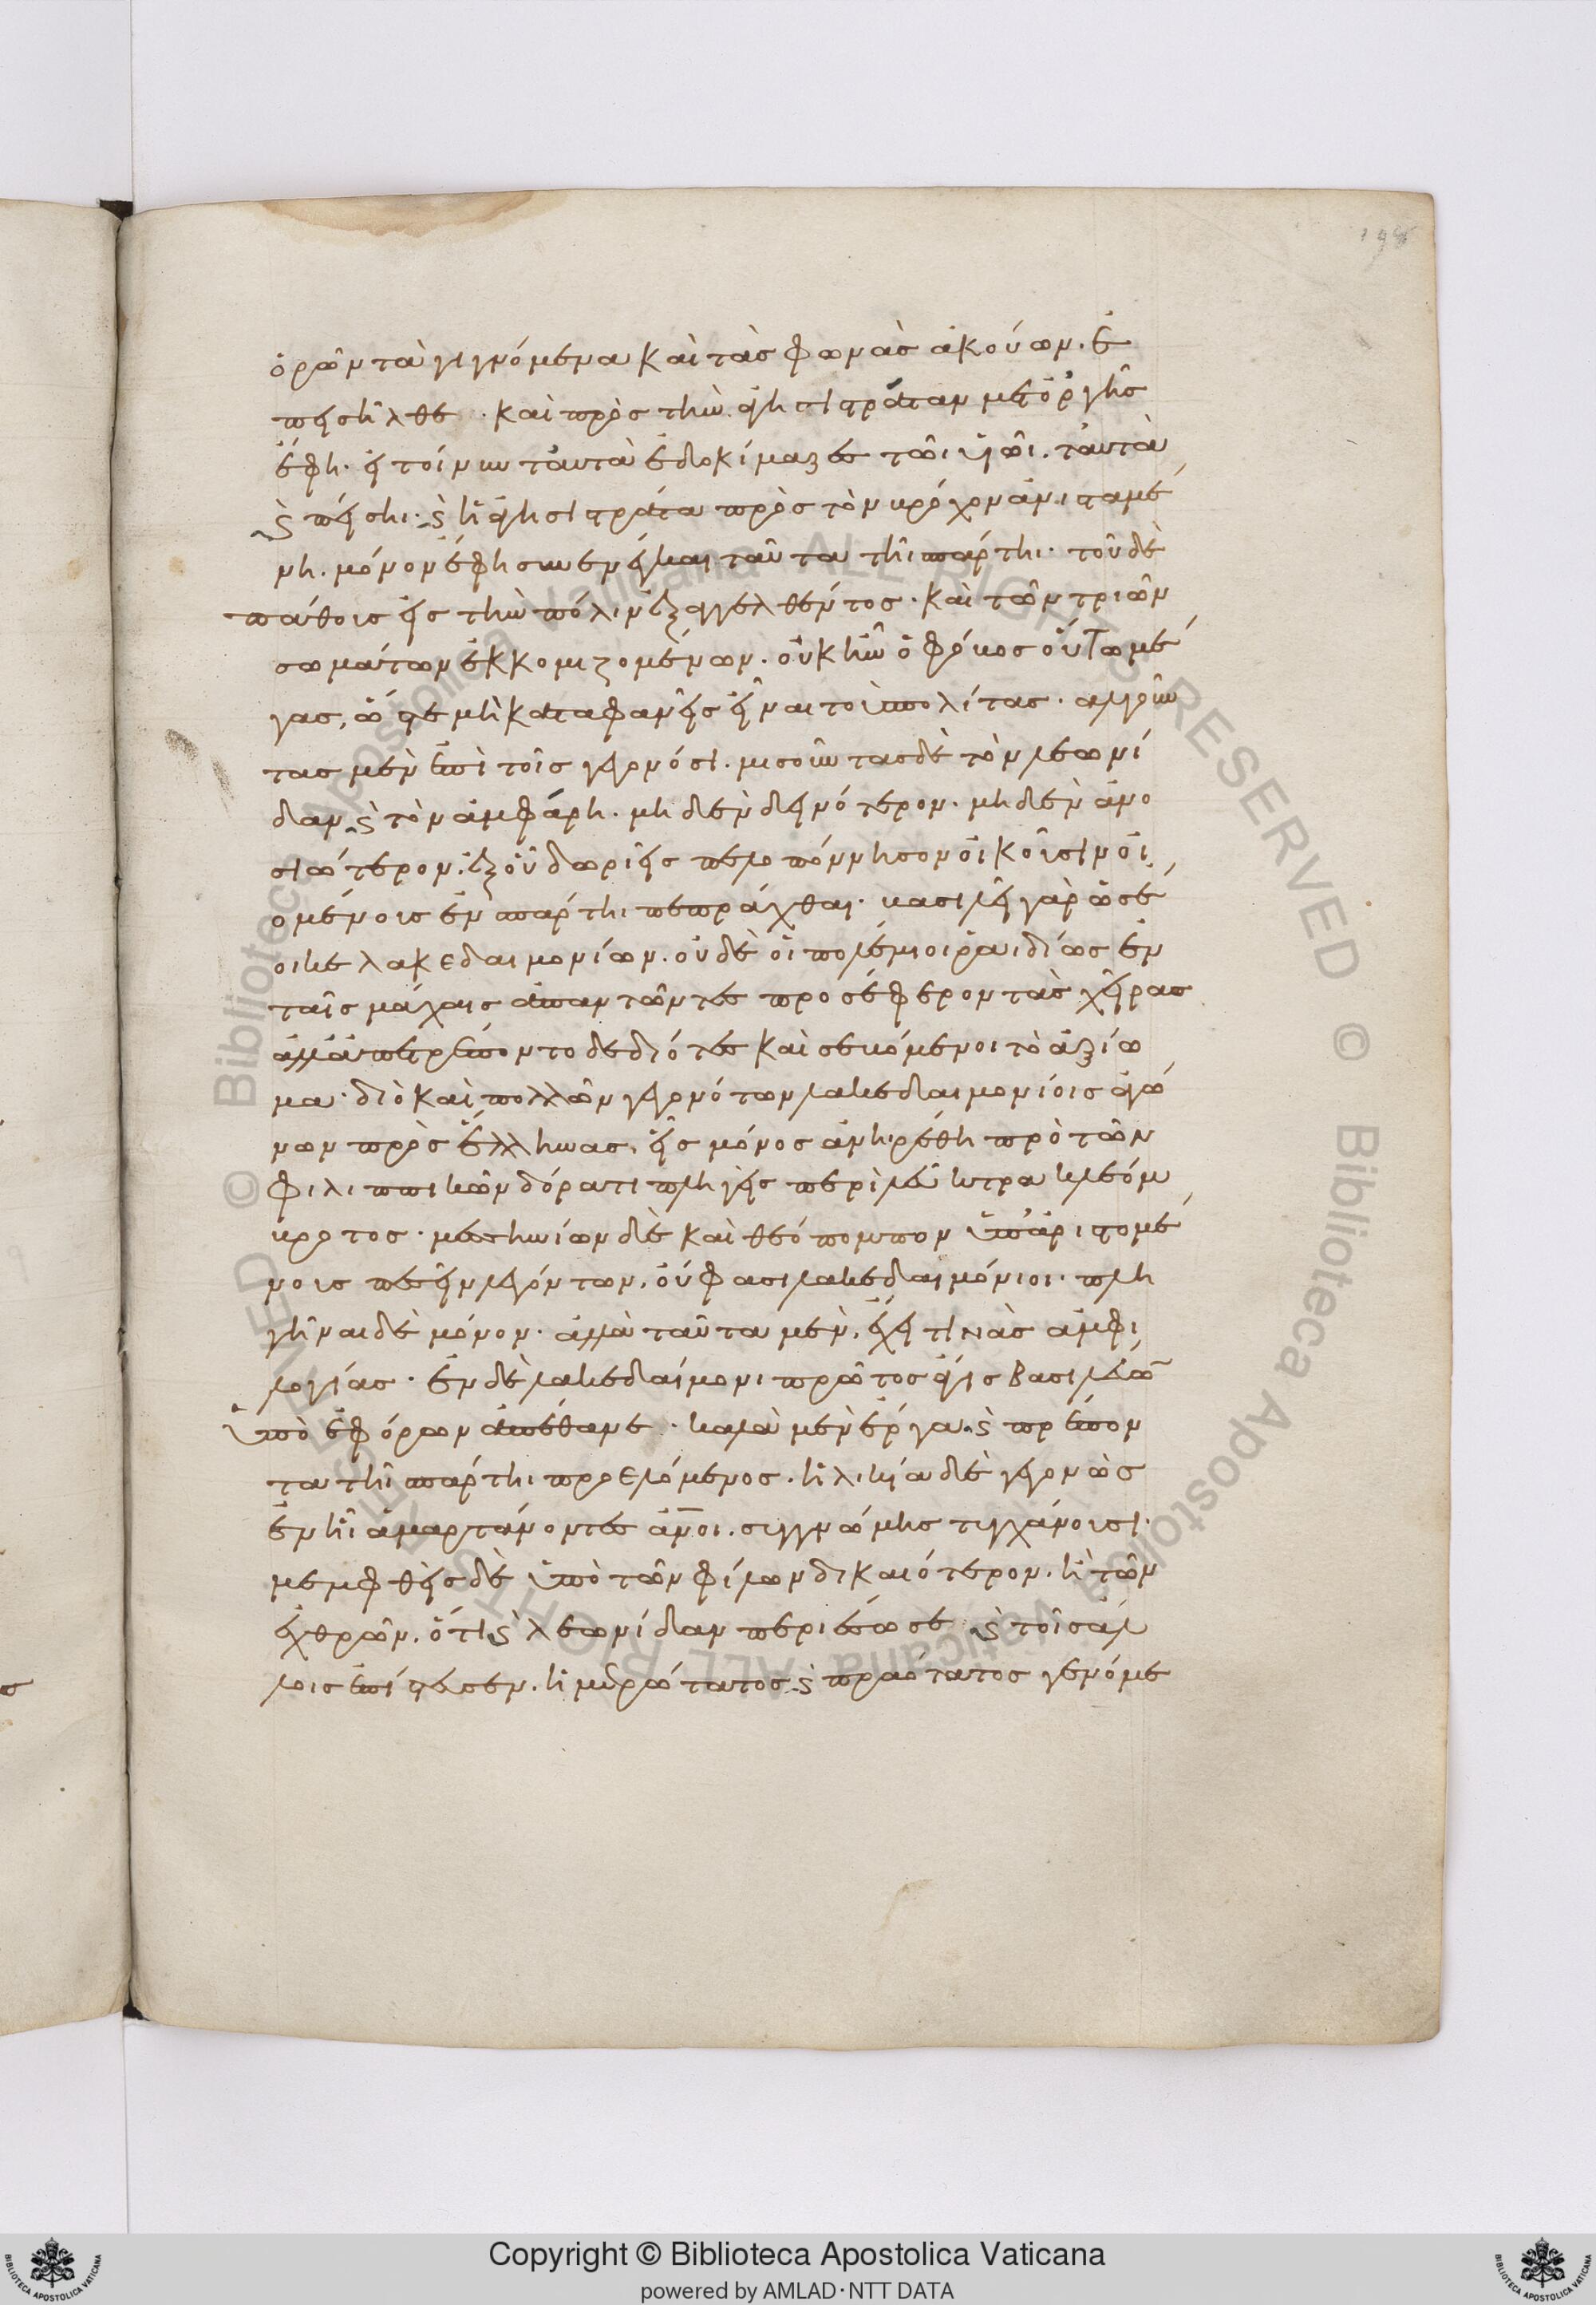 198
ὁρῶν τὰ γιγνόμενα καὶ τὰς φωνὰς ἀκούων. ἐ
πεισῆλθε. καὶ πρὸς τὴν ἀγησιστράταν μετ ὀργῆς
ἔφη. εἰ τοίνυν ταυτὰ ἐδοκίμαζες τῶι υἱῶι. ταυτὰ
ϗ πείσηι. ϗ ἡ ἀγησιστράτα πρὸς τὸν βρόχον ἀνισταμέ
νη. μόνον ἔφη συνενέγκαι ταῦτα τῆι σπάρτηι. τοῦ δὲ
πάθους εἰς τὴν πόλιν ἐξαγγελθέντος. καὶ τῶν τριῶν
σωμάτων ἐκκομιζομένων. οὐκ ἦν ὁ φόβος οὕτω μέ
γας, ὥστε μὴ καταφανεῖς εἶναι τοὺς πολίτας. ἀλγοῦν
τας μὲν ἐπὶ τοῖς γεγονόσι. μισοῦντας δὲ τὸν λεωνί
δαν ϗ τὸν ἀμφάρη. μηδὲν δεινότερον. μηδὲν ἀνο
σιώτερον. ἐξ οὗ δωριεῖς πελοπόννησον οἰκοῦσιν οἰ
ομένους ἐν σπάρτηι πεπράχθαι. βασιλεῖ γὰρ ὡς ἔ
οικε λακεδαιμονίων. οὐδὲ οἱ πολέμιοι ῥαιδίως ἐν
ταῖς μάχαις ἀπαντῶντες προσέφερον τὰς χεῖρας
ἀλλ ἀπετρέποντο δεδιότες καὶ σεβόμενοι τὸ ἀξίω
μα. διὸ καὶ πολλῶν γεγονότων λακεδαιμονίοις ἀγώ
νων πρὸς ἕλληνας, εἷς μόνος ἀνηιρέθη πρὸ τῶν
φιλιππικῶν δόρατι πληγεὶς περὶ λεῦκτρα κλεόμ
βροτος. μεσσηνίων δὲ καὶ θεόπομπον ὑπ ἀριστομέ
νους πεσεῖν λεγόντων. οὔ φασι λακεδαιμόνιοι. πλη
γῆναι δὲ μόνον. ἀλλὰ ταῦτα μὲν, ἔχει τινὰς ἀμφι
λογίας. ἐν δὲ λακεδαίμονι πρῶτος ἆγις βασιλεύων
ὑπὸ ἐφόρων ἀπέθανε. καλὰ μὲν ἔργα ϗ πρέπον
τα τῆι σπάρτηι προελόμενος. ἡλικίᾳ δὲ γεγονὼς
ἐν ἧι ἁμαρτάνοντες ἄνοι. συγγνώμης τυγχάνουσι.
μεμφθεὶς δὲ ὑπὸ τῶν φίλων δικαιότερον. ἢ τῶν
ἐχθρῶν. ὅτι ϗ λεωνίδαν περιέσωσε ϗ τοῖς ἄλ
λοις ἐπίστευσεν. ἡμερώτατος ϗ πραότατος γενόμε
Copyright © Biblioteca Apostolica Vaticana
powered by AMLAD·NTT DATA